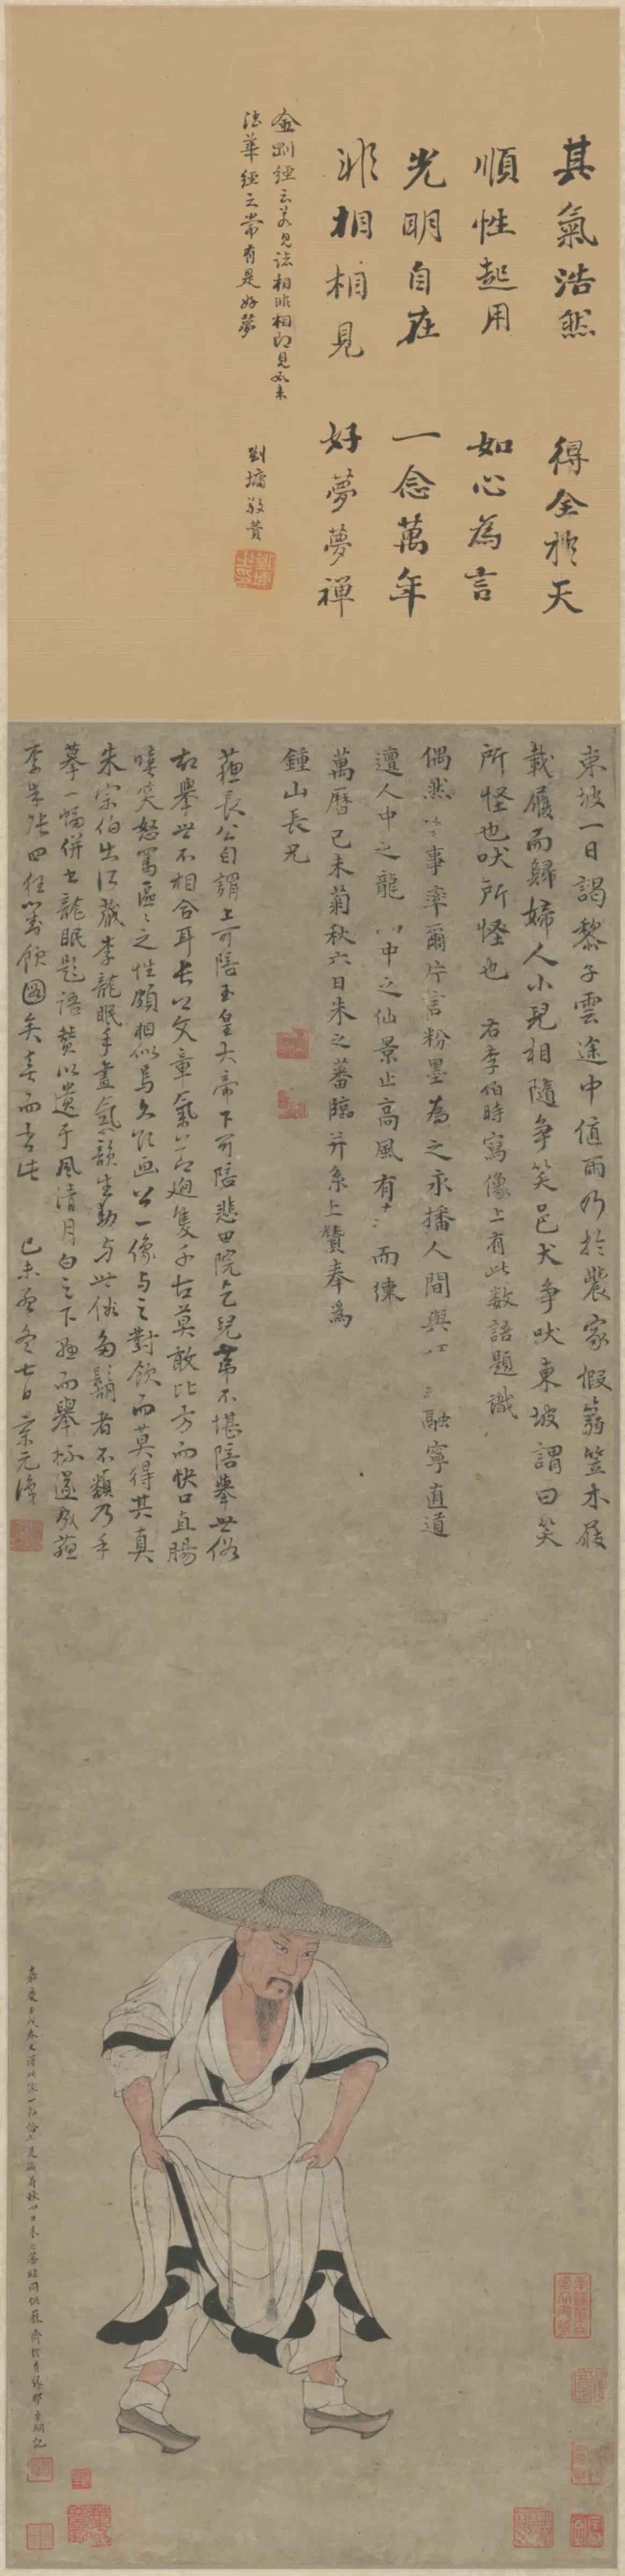 其氣浩然 得全於天
順性起用 如心為言
光明自在 一念萬年
非相相見 好夢夢禪
金剛經云若見諸相非相即見如來
法華經云常有是好夢
劉墉敬贊
東坡一日謁黎子雲途中值雨乃於農家假蒻笠木屐
載履而歸婦人小兒相隨爭笑邑犬爭吠東坡謂曰笑
所怪也吠所怪也 右李伯時寫像上有此數語題識
偶然 事率爾片言粉墨為之永播人間與 融寧直道
邅人中之龍 中之仙景止高風有 而練
萬曆己未菊秋六日朱之蕃臨并系上贊奉為
鍾山長兄
蘇長公自謂上可陪玉皇大帝下可陪悲田院乞兒第不堪陪舉世俗
故舉世不相合耳長公文章氣節迥隻千古莫敢比方而快口直腸
嘻笑怒罵區區之性頗相似焉久欲画公一像与之對飲而莫得其真
朱宗伯出所藏李龍眠手畫氣韻生動与世俗多鬍者不類乃手
摹一幅併書龍眠題語贊以遺于風清月白之下 而舉杯遂成蘇
李朱張四狂對飲圖矣喜而書此 己未 冬七日
嘉慶 戌 又得此像一 朱之蕃臨 記